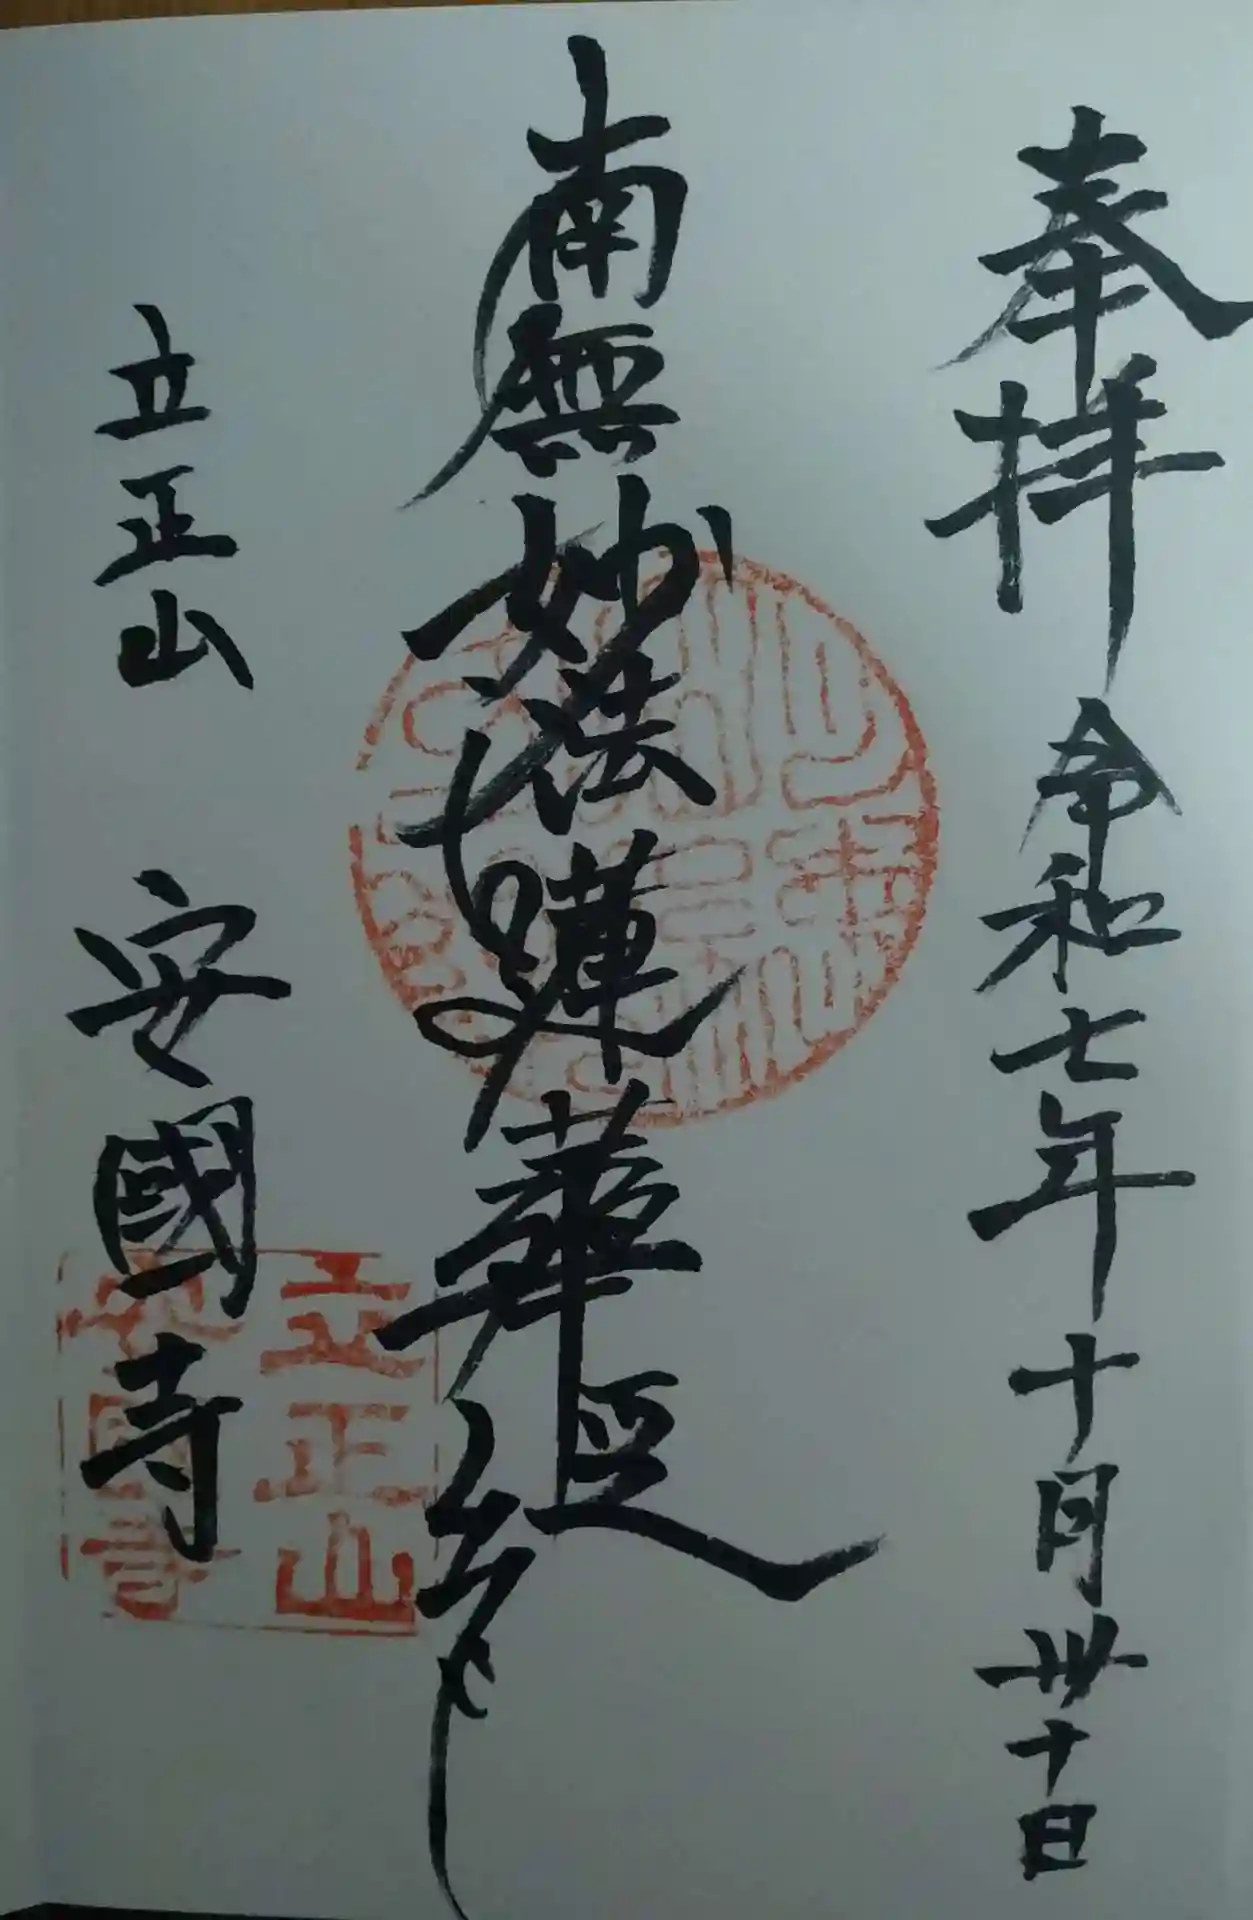 奉拝 令和七年十月卅十日
南無妙法蓮華経
立正山 安國寺
立正山
安國寺